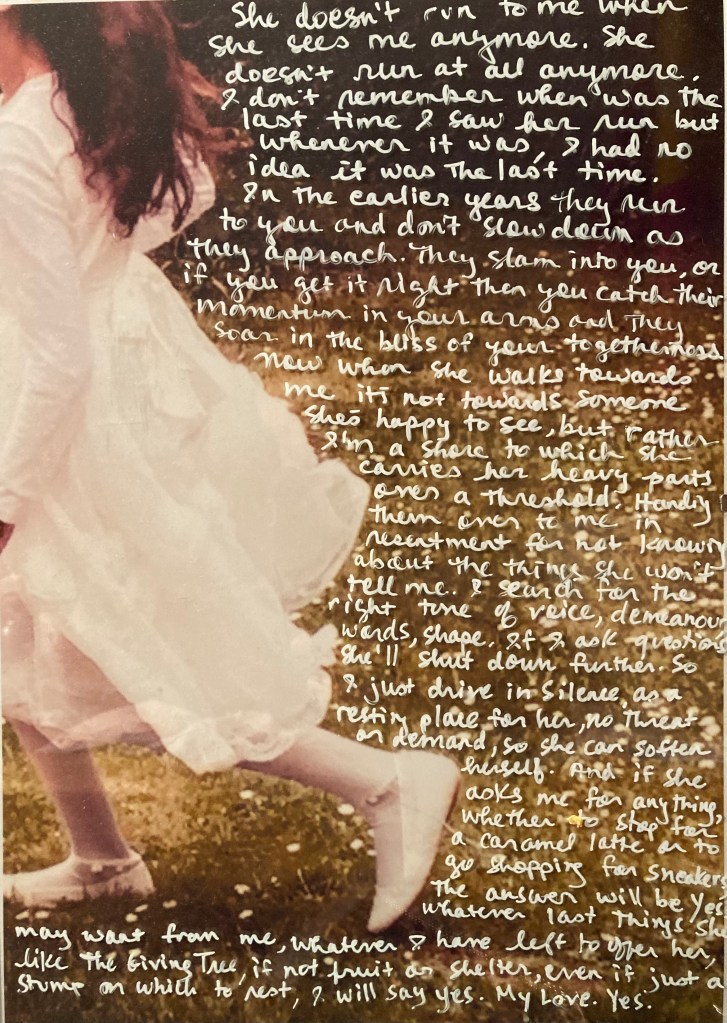 She doesn't run to me when
she sees me anymore. She
doesn't run at all anymore.
I don't remember when was the
last time I saw her run but
whenever it was, I had no
idea it was the last time.
In the earlier years they run
to you and don't slow down as
they approach. They slam into you, or
if you get it right then you catch their
momentum in your arms and they
soar in the bliss of your togetherness
now when she walks towards
me it's not towards someone
she's happy to see, but rather
I'm a shore to which she
carries her heavy parts
over a threshold. Handing
them over to me in
resentment for not knowing
about the things she won't
tell me. I search for the
right tone of voice, demeanour
words, shape. If I ask questions
she'll shut down further. So
I just drive in silence, as a
resting place for her, no threat
or demand, so she can soften
herself. And if she
asks me for anything,
whether to stop for
a caramel latte or to
go shopping for sneakers
the answer will be yes
whatever last things she
may want from me, whatever I have left to offer her,
like The Giving Tree, if not fruit or shelter, even if just a
stump on which to rest, I will say yes. My Love. Yes.